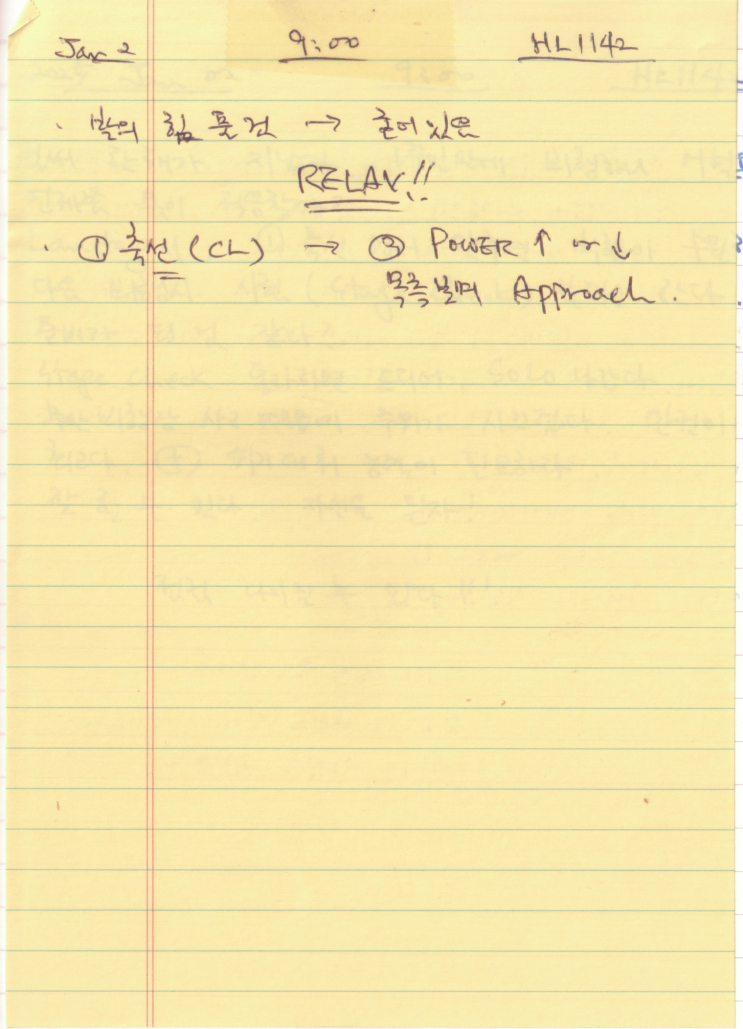 Jan 2 9:00 HL1142
· 발의 힘 풀건 → 굳어있음
RELAX!!
· ① 축선 (CL) → ② POWER ↑ or ↓
목측보며 Approach.